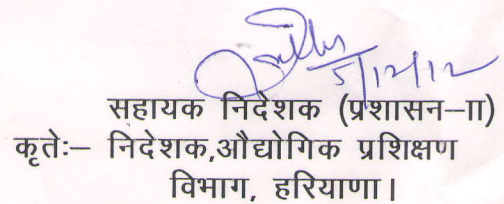 5/12/12
सहायक निदेशक (प्रशासन–II)
कृतेः– निदेशक,औद्योगिक प्रशिक्षण
विभाग, हरियाणा।